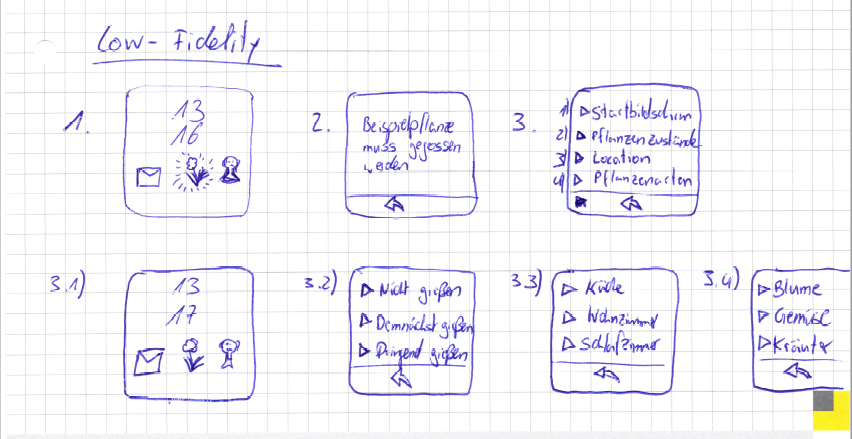 Low-Fidelity
1.
13
16
2.
Beispielpflanze
muss gegossen
werden
3.
1) Startbildschirm
2) Pflanzenzustände
3) Location
4) Pflanzenarten
3.1)
13
17
3.2)
Nicht gießen
Demnächst gießen
Dringend gießen
3.3)
Küche
Wohnzimmer
Schlafzimmer
3.4)
Blume
Gemüse
Kräuter